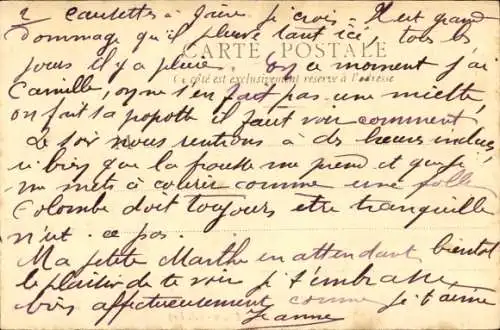 2 causettes à faire je crois. Il est grand
dommage qu'il pleuve tant ici, tous les
CARTE POSTALE
jours il y a pluie. En ce moment j'ai
Ce côté est exclusivement réservé à l'adresse
Camille, on ne s'en fait pas une miette,
on fait la popotte il faut voir comment,
Le soir nous rentrons à des heures indues,
si bien que la frousse me prend et que je
me mets à courir comme une folle
Colombe doit toujours etre tranquille
n'est-ce pas.
Ma petite Marthe en attendant bientot
le plaisir de te voir je t'embrasse
bien affectueusement comme je t'aime
Jeanne